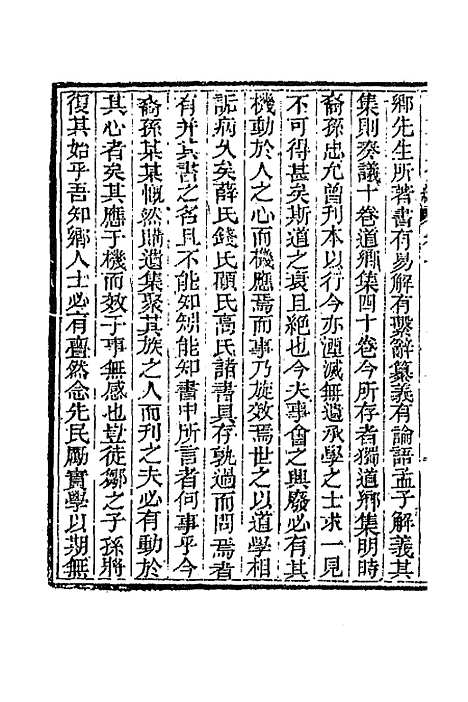 鄉先生所著書有易解有繫辭纂義有論語孟子解義其
集則奏議十卷道鄉集四十卷今所存者獨道鄉集明時
裔孫忠允曾刊本以行今亦湮滅無遺承學之士求一見
不可得甚矣斯道之衰且絶也今夫事會之興廢必有其
機動於人之心而機應焉而事乃旋效焉世之以道學相
詬病久矣薛氏錢氏顧氏高氏諸書具存孰過而問焉者
有并其書之名且不能知矧能知書中所言者何事乎今
裔孫某某慨然購遺集聚其族之人而刊之夫必有動於
其心者矣其應于機而效于事無感也豈徒鄒之子孫將
復其始乎吾知鄉人士必有齋然念先民勵實學以期無